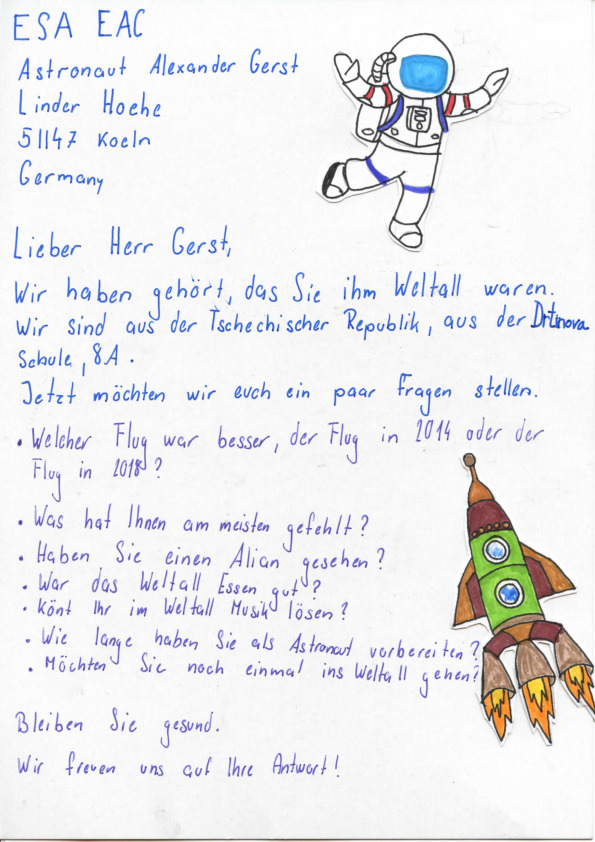 ESA EAC
Astronaut Alexander Gerst
Linder Hoehe
51147 Koeln
Germany
Lieber Herr Gerst,
Wir haben gehört, das Sie ihm Weltall waren.
Wir sind aus der Tschechischer Republik, aus der Drtinova
Schule, 8A.
Jetzt möchten wir euch ein paar Fragen stellen.
• Welcher Flug war besser, der Flug in 2014 oder der
Flug in 2018?
• Was hat Ihnen am meisten gefehlt?
• Haben Sie einen Alian gesehen?
• War das Weltall Essen gut?
• Könt Ihr im Weltall Musik lösen?
• Wie lange haben Sie als Astronaut vorbereiten?
• Möchten Sie noch einmal ins Weltall gehen?
Bleiben Sie gesund.
Wir freuen uns auf Ihre Antwort!